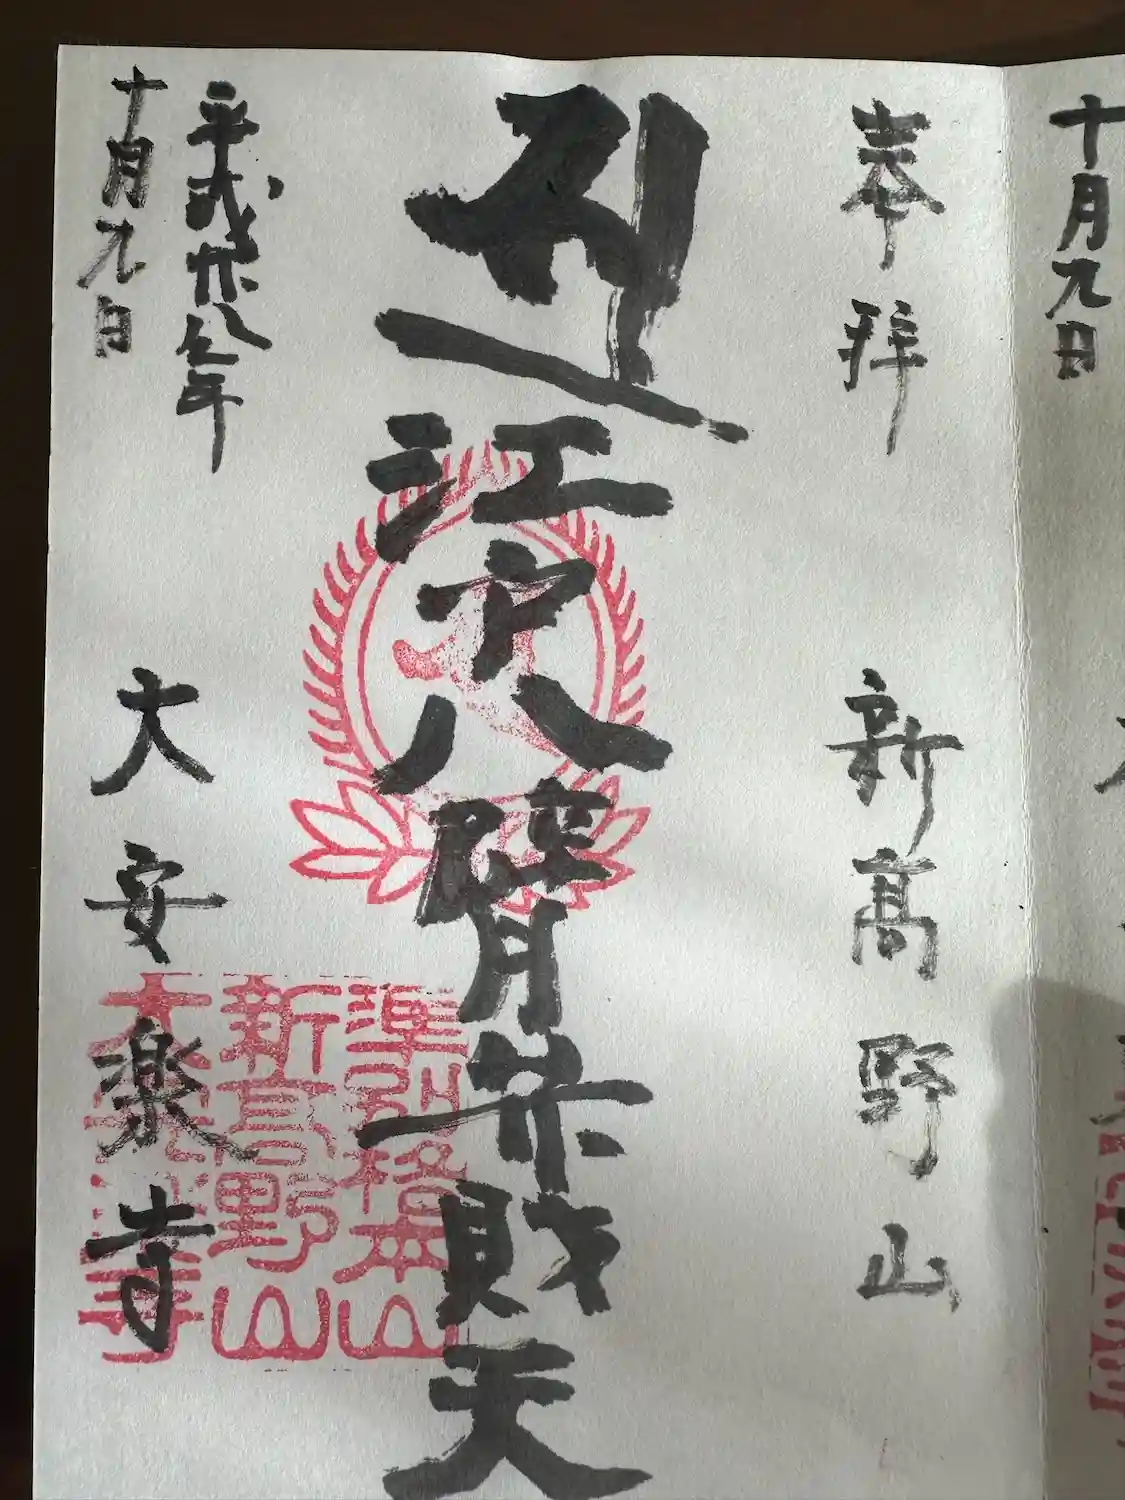 十月九日
奉拝
新高野山
江戸八臂弁財天
準別格本山
新高野山
大安楽寺
平成廿八年
十月九日
大安楽寺